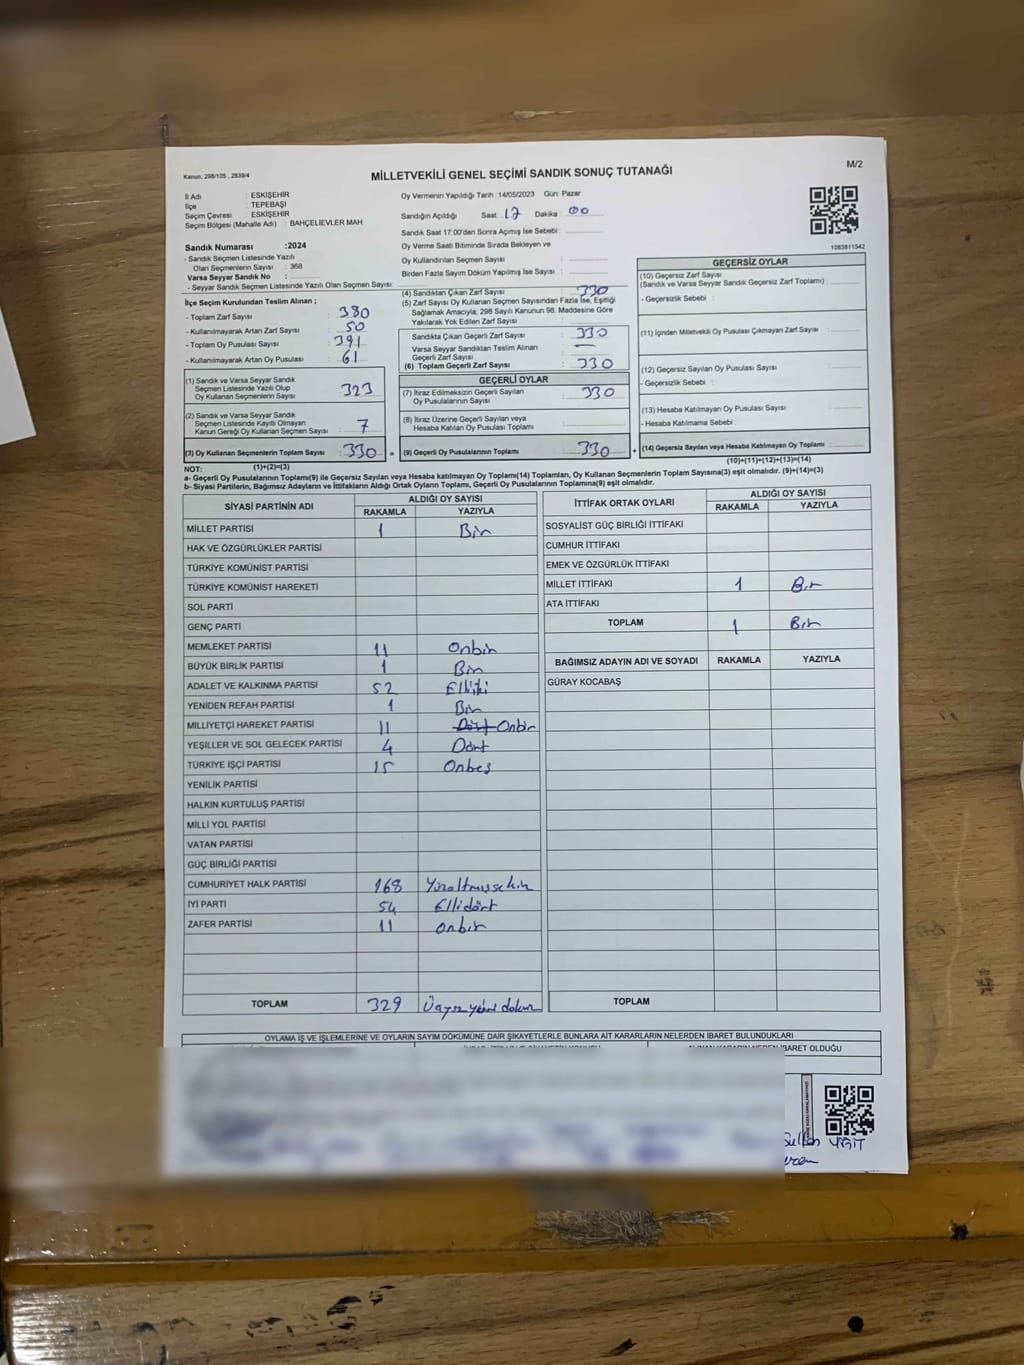 Kanun; 298/105 , 2839/4
MİLLETVEKİLİ GENEL SEÇİMİ SANDIK SONUÇ TUTANAĞI
M/2
İl Adı : ESKİŞEHİR
İlçe : TEPEBAŞI
Seçim Çevresi : ESKİŞEHİR
Seçim Bölgesi (Mahalle Adı) : BAHÇELİEVLER MAH
Sandık Numarası :2024
- Sandık Seçmen Listesinde Yazılı
Olan Seçmenlerin Sayısı : 368
Varsa Seyyar Sandık No :
- Seyyar Sandık Seçmen Listesinde Yazılı Olan Seçmen Sayısı:
İlçe Seçim Kurulundan Teslim Alınan ;
- Toplam Zarf Sayısı : 380
- Kullanılmayarak Artan Zarf Sayısı : 50
- Toplam Oy Pusulası Sayısı : 391
- Kullanılmayarak Artan Oy Pusulası : 61
(1) Sandık ve Varsa Seyyar Sandık
Seçmen Listesinde Yazılı Olup
Oy Kullanan Seçmenlerin Sayısı : 323
(2) Sandık ve Varsa Seyyar Sandık
Seçmen Listesinde Kayıtlı Olmayan
Kanun Gereği Oy Kullanan Seçmen Sayısı : 7
(3) Oy Kullanan Seçmenlerin Toplam Sayısı : 330
(1)+(2)=(3)
Oy Vermenin Yapıldığı Tarih :14/05/2023 Gün: Pazar
Sandığın Açıldığı Saat 17 Dakika : 00
Sandık Saat 17:00'den Sonra Açımış İse Sebebi :
Oy Verme Saati Bitiminde Sırada Bekleyen ve
Oy Kullandırılan Seçmen Sayısı :
Birden Fazla Sayım Döküm Yapılmış İse Sayısı :
(4) Sandıktan Çıkan Zarf Sayısı : 330
(5) Zarf Sayısı Oy Kullanan Seçmen Sayısından Fazla İse, Eşitliği
Sağlamak Amacıyla; 298 Sayılı Kanunun 98. Maddesine Göre
Yakılarak Yok Edilen Zarf Sayısı :
Sandıkta Çıkan Geçerli Zarf Sayısı : 330
Varsa Seyyar Sandıktan Teslim Alınan
Geçerli Zarf Sayısı : —
(6) Toplam Geçerli Zarf Sayısı : 330
GEÇERLİ OYLAR
(7) İtiraz Edilmeksizin Geçerli Sayılan
Oy Pusulalarının Sayısı : 330
(8) İtiraz Üzerine Geçerli Sayılan veya
Hesaba Katılan Oy Pusulası Toplamı :
(9) Geçerli Oy Pusulalarının Toplamı : 330
1083811542
GEÇERSİZ OYLAR
(10) Geçersiz Zarf Sayısı
(Sandık ve Varsa Seyyar Sandık Geçersiz Zarf Toplamı) :
- Geçersizlik Sebebi :
(11) İçinden Milletvekili Oy Pusulası Çıkmayan Zarf Sayısı :
(12) Geçersiz Sayılan Oy Pusulası Sayısı :
- Geçersizlik Sebebi :
(13) Hesaba Katılmayan Oy Pusulası Sayısı :
- Hesaba Katılmama Sebebi :
(14) Geçersiz Sayılan veya Hesaba Katılmayan Oy Toplamı :
(10)+(11)+(12)+(13)=(14)
NOT:
a- Geçerli Oy Pusulalarının Toplamı(9) ile Geçersiz Sayılan veya Hesaba katılmayan Oy Toplamı(14) Toplamları, Oy Kullanan Seçmenlerin Toplam Sayısına(3) eşit olmalıdır. (9)+(14)=(3)
b- Siyasi Partilerin, Bağımsız Adayların ve İttifakların Aldığı Ortak Oyların Toplamı, Geçerli Oy Pusulalarının Toplamına(9) eşit olmalıdır.
SİYASİ PARTİNİN ADI ALDIĞI OY SAYISI
RAKAMLA YAZIYLA
MİLLET PARTİSİ 1 Bir
HAK VE ÖZGÜRLÜKLER PARTİSİ
TÜRKİYE KOMÜNİST PARTİSİ
TÜRKİYE KOMÜNİST HAREKETİ
SOL PARTİ
GENÇ PARTİ
MEMLEKET PARTİSİ 11 Onbir
BÜYÜK BİRLİK PARTİSİ 1 Bir
ADALET VE KALKINMA PARTİSİ 52 Elliiki
YENİDEN REFAH PARTİSİ 1 Bir
MİLLİYETÇİ HAREKET PARTİSİ 11 Dört Onbir
YEŞİLLER VE SOL GELECEK PARTİSİ 4 Dört
TÜRKİYE İŞÇİ PARTİSİ 15 Onbeş
YENİLİK PARTİSİ
HALKIN KURTULUŞ PARTİSİ
MİLLİ YOL PARTİSİ
VATAN PARTİSİ
GÜÇ BİRLİĞİ PARTİSİ
CUMHURİYET HALK PARTİSİ 168 Yüzaltmışsekiz
İYİ PARTİ 54 Ellidört
ZAFER PARTİSİ 11 onbir
TOPLAM 329 Üçyüzyirmidokuz
İTTİFAK ORTAK OYLARI ALDIĞI OY SAYISI
RAKAMLA YAZIYLA
SOSYALİST GÜÇ BİRLİĞİ İTTİFAKI
CUMHUR İTTİFAKI
EMEK VE ÖZGÜRLÜK İTTİFAKI
MİLLET İTTİFAKI 1 Bir
ATA İTTİFAKI
TOPLAM 1 Bir
BAĞIMSIZ ADAYIN ADI VE SOYADI RAKAMLA YAZIYLA
GÜRAY KOCABAŞ
TOPLAM
OYLAMA İŞ VE İŞLEMLERİNE VE OYLARIN SAYIM DÖKÜMÜNE DAİR ŞİKAYETLERLE BUNLARA AİT KARARLARIN NELERDEN İBARET BULUNDUKLARI
İBARET OLDUĞU
YİĞİT